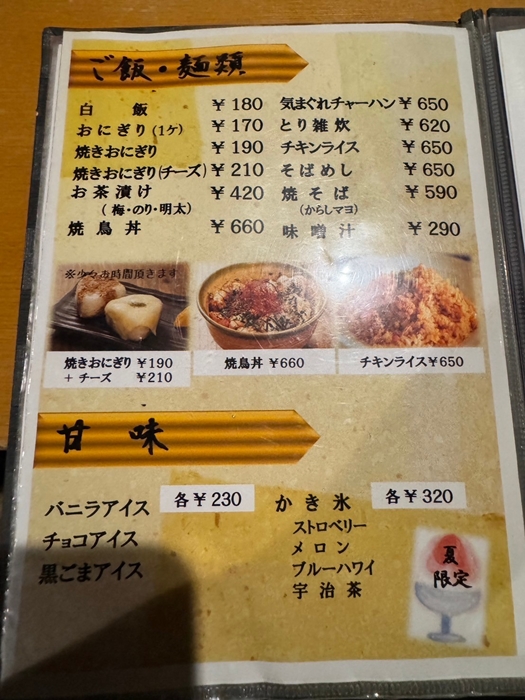 ご飯・麺類
白飯 ￥180
おにぎり(1ケ) ￥170
焼きおにぎり ￥190
焼きおにぎり(チーズ) ￥210
お茶漬け ￥420
(梅・のり・明太)
焼鳥丼 ￥660
気まぐれチャーハン ￥650
とり雑炊 ￥620
チキンライス ￥650
そばめし ￥650
焼そば ￥590
(からしマヨ)
味噌汁 ￥290
※少々お時間頂きます
焼きおにぎり ￥190
+ チーズ ￥210
焼鳥丼 ￥660
チキンライス ￥650
甘味
各￥230
バニラアイス
チョコアイス
黒ごまアイス
かき氷 各￥320
ストロベリー
メロン
ブルーハワイ
宇治茶
夏
限定